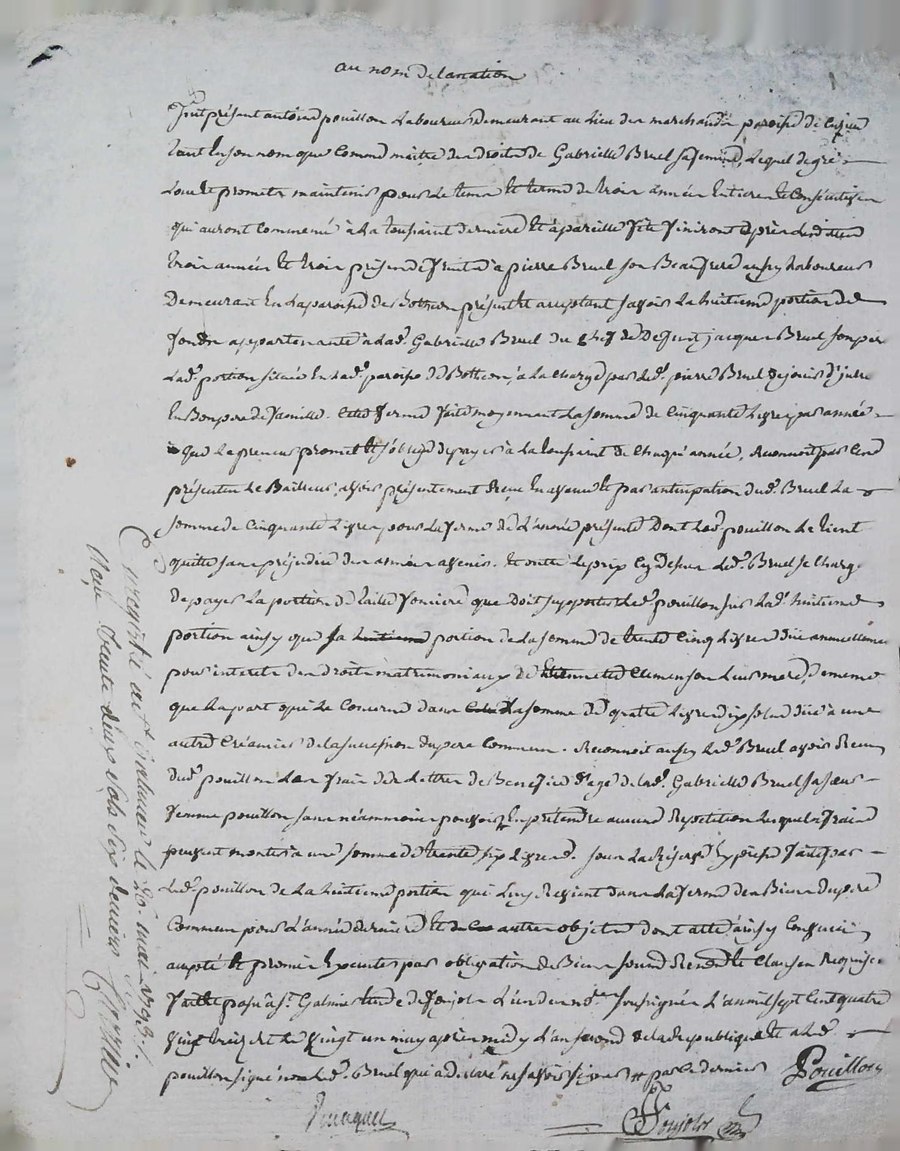 au nom de la nation
Fut présant antoine pouillon Laboureur demeurant au Lieu des marchands paroisse de
tant En son nom que Comme maitre des droits de Gabrielle Bruel sa femme, Lequel de gré
Loue et promets maintenir pour Le tems et terme de trois années Entieres et Consécutives
qui auront Commencé à La toussaint derniere et à pareille fête finiront après Lesdittes
trois années et trois prises de fruits à pierre Bruel son Beaufrere aussy Laboureur
Demeurant En la paroisse de Bottheon présent et acceptant savoir La huitieme portion de
fonds appartenante à lade. Gabrielle Bruel du chef de Defunt jacques Bruel son per
Lade. portion située En lade. paroisse de Bottheon, à La Charge par Led. pierre Bruel de jouir d'jcelle
En Bon pere de famille. Cette ferme faite moyennant La somme de Cinquante Livres par année
Que le preneur promet et s'oblige de payer à La toussaint de Chaqu'année, Reconnoit par Ces
présentes Le Bailleur, avoir présentement Reçu En avance et par anticipation dud. Bruel La
somme de Cinquante Livres pour La ferme de L'année présente Dont Led. pouillon Le tient
quitte sans préjudice des années avenir. et outre Le prix Cy dessus Led. Bruel se Charge
De payer La portion de taille fonciere que doit supporter Led. pouillon sur Lade. huitieme
portion ainsy que sa huitieme portion de La somme de trente Cinq Livres düe annuellement
pour interets des droits matrimoniaux de Etiennette Clemenson Leur mere, de meme
que La part qui Le Concerne dans La somme de quatre Livres dix sols düe à une
autre Créancier de la succession du pere Commun. Reconnoit aussy Led. Bruel avoir Reçu
dud. pouillon Les frais de Lettres de Benefice d'age de Lad. Gabrielle Bruel sa sœur
femme pouillon sans néammoins pouvoir En prétendre aucune Repetition Lesquels fraix
peuvent monter à une somme de trente six Livres. sous La Réserve Expresse faite par
Led. pouillon de La huitieme portion qui Luy Revient dans La ferme des Biens du pere
Commun pour L'année derniere et autres objets dont acte ainsy Convenu
accepté et promis Executer par obligation de Biens soumé Renonce et Clauses Requises
faitte passé à St. Galmier Etude de fonjols L'un des nores. soussignés L'an mil sept Cent quatre
vingt treize et Le vingt un may après midy L'an second de la République et a Led.
pouillon signé non Led. Bruel qui a declaré ne savoir signer par Ce dernier Pouillon
Fonjols
Enregistré au Le 26. mai 1793.
Reçu trente deux sols six deniers